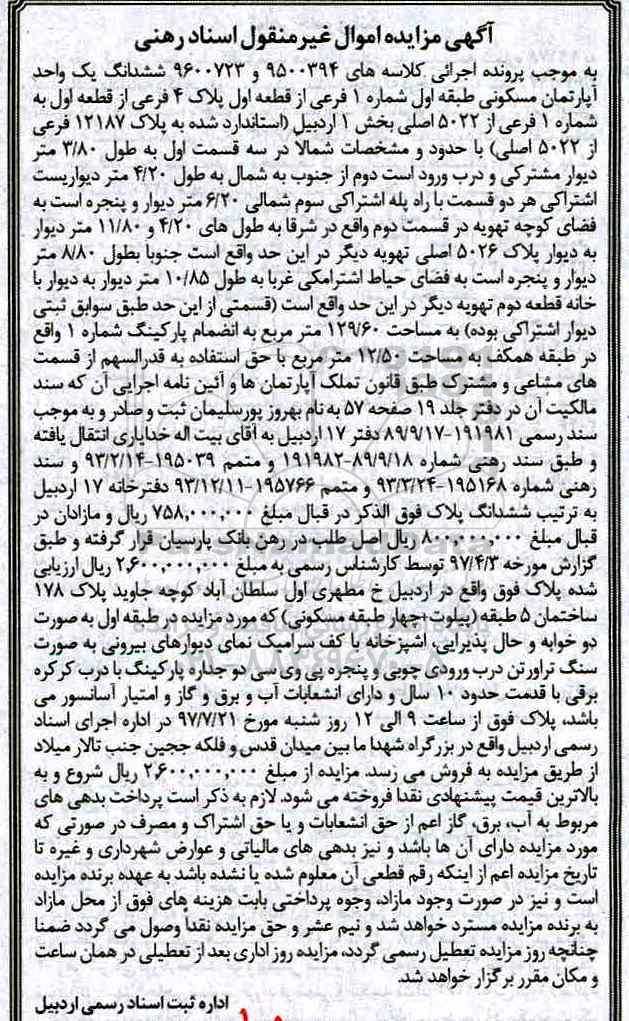 آگهی مزایده اموال غیرمنقول اسناد رهنی
به موجب پرونده اجرائی کلاسه های ۹۵۰۰۳۹۴ و ۹۶۰۰۷۲۳ ششدانگ یک واحد
آپارتمان مسکونی طبقه اول شماره ۱ فرعی از قطعه اول پلاک ۴ فرعی از قطعه اول به
شماره ۱ فرعی از ۵۰۲۲ اصلی بخش ۱ اردبیل (استاندارد شده به پلاک ۱۲۱۸۷ فرعی
از ۵۰۲۲ اصلی) با حدود و مشخصات شمالاً در سه قسمت اول به طول ۳/۸۰ متر
دیوار مشترکی و درب ورود است دوم از جنوب به شمال به طول ۴/۲۰ متر دیواریست
اشتراکی هر دو قسمت با راه پله اشتراکی سوم شمالی ۶/۲۰ متر دیوار و پنجره است به
فضای کوچه تهویه در قسمت دوم واقع در شرقا به طول های ۴/۲۰ و ۱۱/۸۰ متر دیوار
به دیوار پلاک ۵۰۲۶ اصلی تهویه دیگر در این حد واقع است جنوبا بطول ۸/۸۰ متر
دیوار و پنجره است به فضای حیاط اشترامکی غربا به طول ۱۰/۸۵ متر دیوار به دیوار با
خانه قطعه دوم تهویه دیگر در این حد واقع است (قسمتی از این حد طبق سوابق ثبتی
دیوار اشتراکی بوده) به مساحت ۱۲۹/۶۰ متر مربع به انضمام پارکینگ شماره ۱ واقع
در طبقه همکف به مساحت ۱۲/۵۰ متر مربع با حق استفاده به قدرالسهم از قسمت
های مشاعی و مشترک طبق قانون تملک آپارتمان ها و آئین نامه اجرایی آن که سند
مالکیت آن در دفتر جلد ۱۹ صفحه ۵۷ به نام بهروز پورسلیمان ثبت و صادر و به موجب
سند رسمی ۱۹۱۹۸۱-۸۹/۹/۱۷ دفتر ۱۷ اردبیل به آقای بیت اله خدایاری انتقال یافته
و طبق سند رهنی شماره ۸۹/۹/۱۸-۱۹۱۹۸۲ و متمم ۱۹۵۰۳۹-۹۳/۲/۱۴ و سند
رهنی شماره ۱۹۵۱۶۸-۹۳/۳/۲۴ و متمم ۱۹۵۷۶۶-۹۳/۱۲/۱۱ دفترخانه ۱۷ اردبیل
به ترتیب ششدانگ پلاک فوق الذکر در قبال مبلغ ۷۵۸,۰۰۰,۰۰۰ ریال و مازادان در
قبال مبلغ ۸۰۰,۰۰۰,۰۰۰ ریال اصل طلب در رهن بانک پارسیان قرار گرفته و طبق
گزارش مورخه ۹۷/۴/۳ توسط کارشناس رسمی به مبلغ ۲,۶۰۰,۰۰۰,۰۰۰ ریال ارزیابی
شده پلاک فوق واقع در اردبیل خ مطهری اول سلطان آباد کوچه جاوید پلاک ۱۷۸
ساختمان ۵ طبقه (پیلوت+چهار طبقه مسکونی) که مورد مزایده در طبقه اول به صورت
دو خوابه و حال پذیرایی، اشپزخانه با کف سرامیک نمای دیوارهای بیرونی به صورت
سنگ تراورتن درب ورودی چوبی و پنجره پی وی سی دو جداره پارکینگ با درب کرکره
برقی با قدمت حدود ۱۰ سال و دارای انشعابات آب و برق و گاز و امتیاز آسانسور می
باشد، پلاک فوق از ساعت ۹ الی ۱۲ روز شنبه مورخ ۹۷/۷/۲۱ در اداره اجرای اسناد
رسمی اردبیل واقع در بزرگراه شهدا ما بین میدان قدس و فلکه ججین جنب تالار میلاد
از طریق مزایده به فروش می رسد. مزایده از مبلغ ۲,۶۰۰,۰۰۰,۰۰۰ ریال شروع و به
بالاترین قیمت پیشنهادی نقدا فروخته می شود. لازم به ذکر است پرداخت بدهی های
مربوط به آب، برق، گاز اعم از حق انشعابات و یا حق اشتراک و مصرف در صورتی که
مورد مزایده دارای آن ها باشد و نیز بدهی های مالیاتی و عوارض شهرداری و غیره تا
تاریخ مزایده اعم از اینکه رقم قطعی آن معلوم شده یا نشده باشد به عهده برنده مزایده
است و نیز در صورت وجود مازاد، وجوه پرداختی بابت هزینه های فوق از محل مازاد
به برنده مزایده مسترد خواهد شد و نیم عشر و حق مزایده نقداً وصول می گردد ضمنا
چنانچه روز مزایده تعطیل رسمی گردد، مزایده روز اداری بعد از تعطیلی در همان ساعت
و مکان مقرر برگزار خواهد شد.
اداره ثبت اسناد رسمی اردبیل